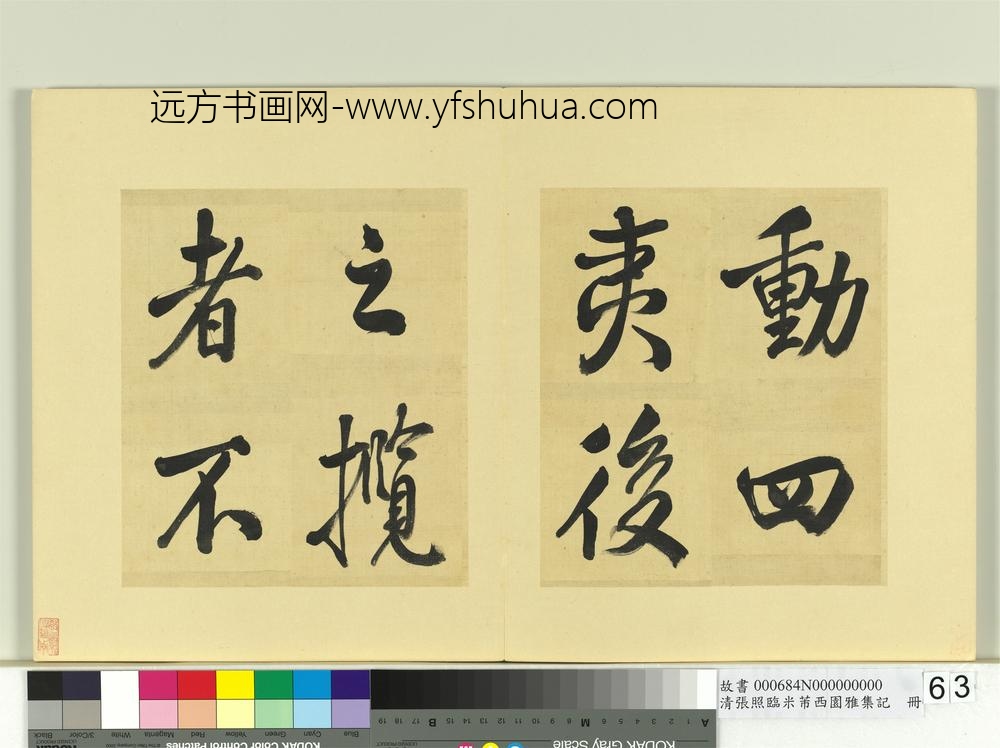 远方书画网-www.yfshuhua.com
動四
夷後
之攬
者不
故書 000684N000000000
清張照臨米芾西園雅集記 冊
63
Blue
Cyan
Green
Yellow
Red
Magenta
White
3/Color
Black
KODAK Color Control Patches
KODAK Gray Scale
A 1 2 3 4 5 6 M 8 9 10 11 12 13 14 15 B 17 18 19